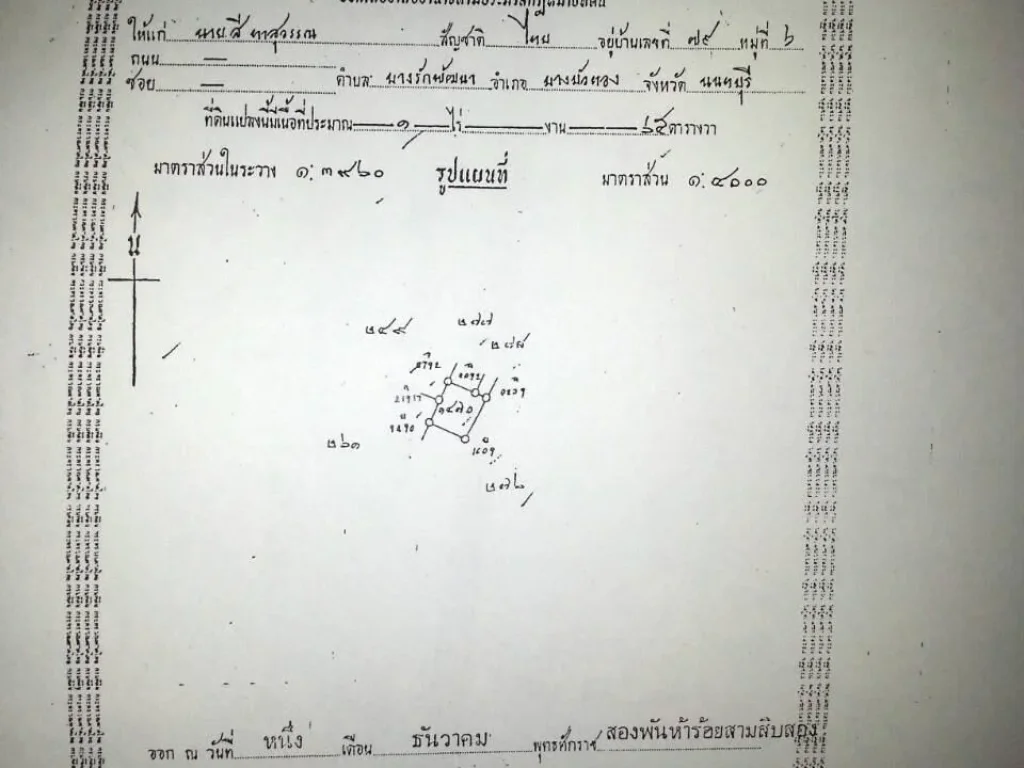 ให้แก่ นายสี ทาสุวรรณ สัญชาติ ไทย อยู่บ้านเลขที่ ๗๙ หมู่ที่ ๖
ถนน —
ซอย — ตำบล บางรักพัฒนา อำเภอ บางบัวทอง จังหวัด นนทบุรี
ที่ดินแปลงนี้มีเนื้อที่ประมาณ — ๑ — ไร่ — งาน — ๖๕ ตารางวา
มาตราส่วนในระวาง ๑:๓๙๖๐ รูปแผนที่ มาตราส่วน ๑:๔๐๐๐
น
๒๔๙ ๒๗๗
๒๗๘
๑๔๗๐
๒๖๑
๒๗๖
ออก ณ วันที่ หนึ่ง เดือน ธันวาคม พุทธศักราช สองพันห้าร้อยสามสิบสอง